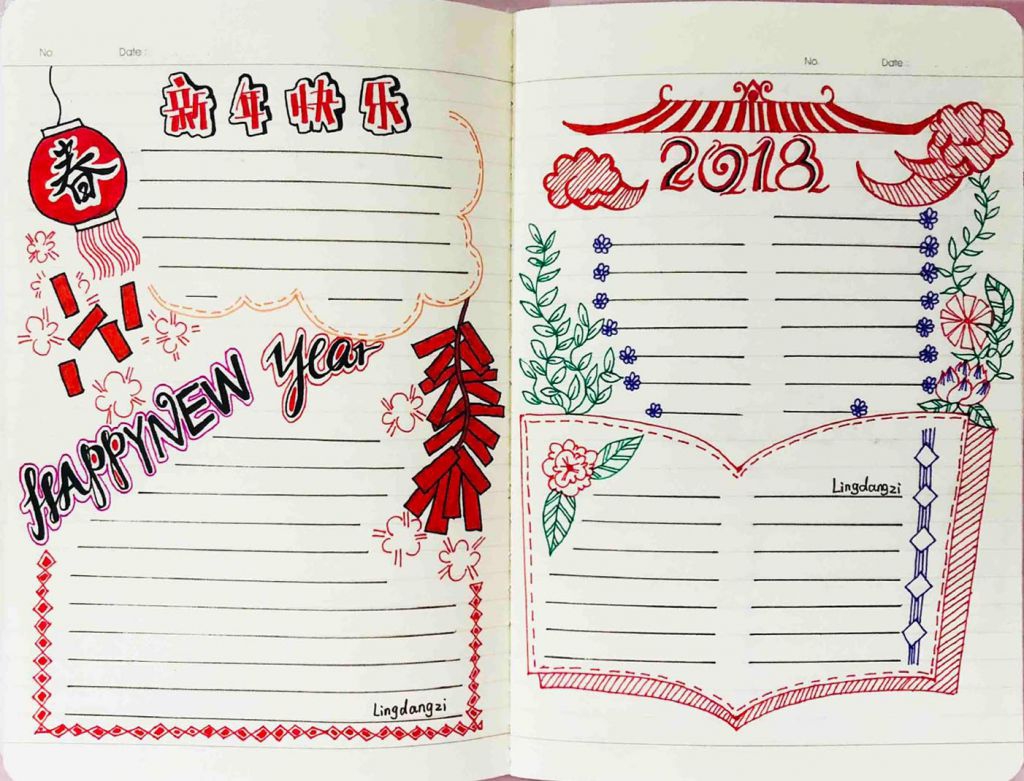 No.
Date:
新年快乐
春
HAPPY NEW Year
Lingdangzi
No.
Date:
2018
Lingdangzi